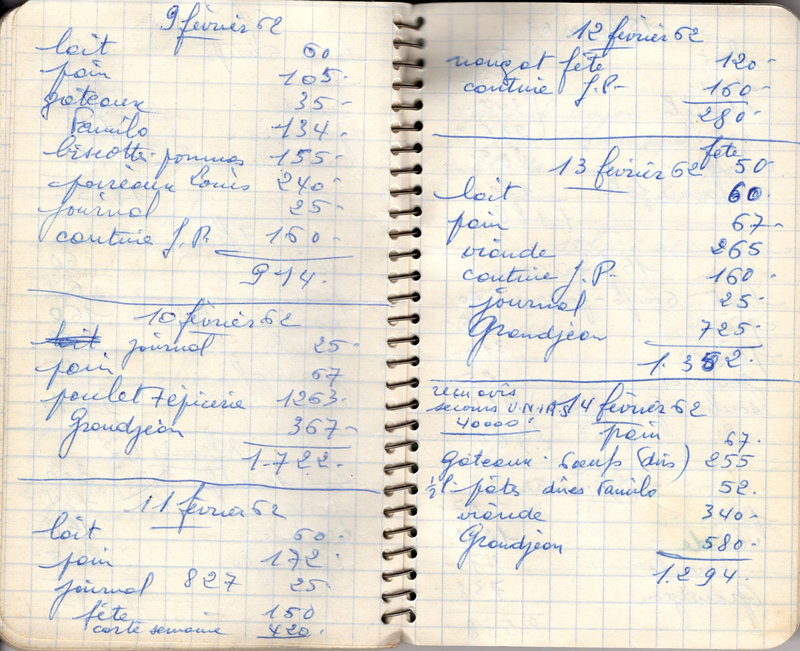 9 février 62
lait 60
pain 105-
gateaux 35-
Familo 134-
biscotte-pommes 155-
poireaux Louis 240-
journal 25-
couture J.P. 160-
914.
10 février 62
journal 25-
pain 67
poulet + épicerie 1263-
Grandjean 367-
1.722.
11 février 62
lait 60-
pain 172-
journal 827 25-
fête 150
carte semaine 420-
12 février 62
nougat fête 120-
couture J.P- 160-
280-
fête
13 février 62 50-
lait 60-
pain 67-
viande 265
couture J.P- 160-
journal 25-
Grandjean 725-
1.352-
reçu avis
secours U.N.I.A.S 14 février 62
40000- pain 67-
gateaux- oeufs (durs) 255
1/2 l- pâtes Familo 52.
viande 340-
Grandjean 580-
1.294.